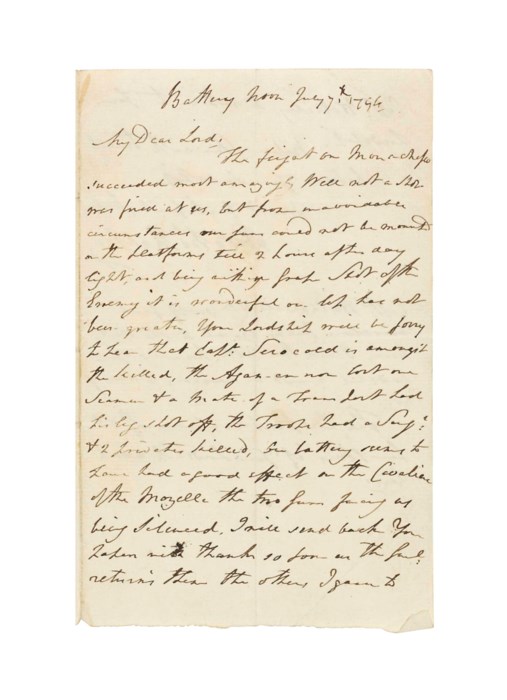 Battery Noon July 7th 1794
My Dear Lord,
The feight on Monachesco
succeeded most amazingly Well not a Shot
was fired at us, but from unavoidable
circumstances our Guns could not be mounted
on the platforms till 2 hours after day
light, and being within Grape Shot of the
Enemy it is wonderful our loss has not
been greater, Your Lordship will be sorry
to hear that Capt: Serocold is amongst
the killed, the Agamemnon lost one
Seaman & a Mate of a Transport had
his leg shot off, the Troops had a Serjt:
& 2 privates killed, our battery seems to
have had a good effect on the Cavalier
of the Mozelle the two Guns facing us
being silenced. I will send back Your
with thanks so soon as the Genl:
returns them the others I gave to